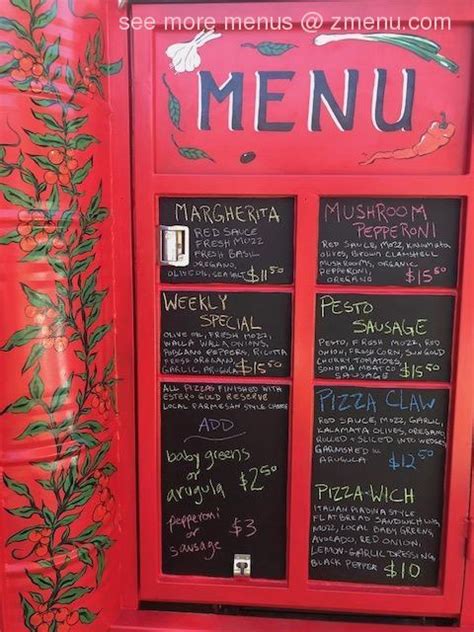 see more menus @ zmenu.com
MENU
MARGHERITA
RED SAUCE
FRESH MOZZ
FRESH BASIL
OREGANO,
OLIVE OIL, SEA SALT $11.50
WEEKLY
SPECIAL
OLIVE OIL, FRESH MOZZ,
WALLA WALLA ONIONS,
POBLANO PEPPERS, RICOTTA
FRESH OREGANO
GARLIC, ARUGULA $15.50
ALL PIZZAS FINISHED WITH
ESTERO GOLD RESERVE
LOCAL PARMESAN STYLE CHEESE
ADD
baby greens
or
arugula $2.50
pepperoni
or
sausage $3
MUSHROOM
PEPPERONI
RED SAUCE, MOZZ, KALAMATA
OLIVES, BROWN CLAMSHELL
MUSHROOMS, ORGANIC
PEPPERONI,
OREGANO $15.50
PESTO
SAUSAGE
PESTO, FRESH MOZZ, RED
ONION, FRESH CORN, SUNGOLD
CHERRY TOMATOES,
SONOMA MEAT CO
SAUSAGE $15.50
PIZZA CLAW
RED SAUCE, MOZZ, GARLIC,
KALAMATA OLIVES, OREGANO
ROLLED + SLICED INTO WEDGES
GARNISHED W/
ARUGULA $12.50
PIZZA-WICH
ITALIAN PIADINA STYLE
FLAT BREAD SANDWICH W/
MOZZ, LOCAL BABY GREENS,
AVOCADO, RED ONION,
LEMON-GARLIC DRESSING,
BLACK PEPPER $10